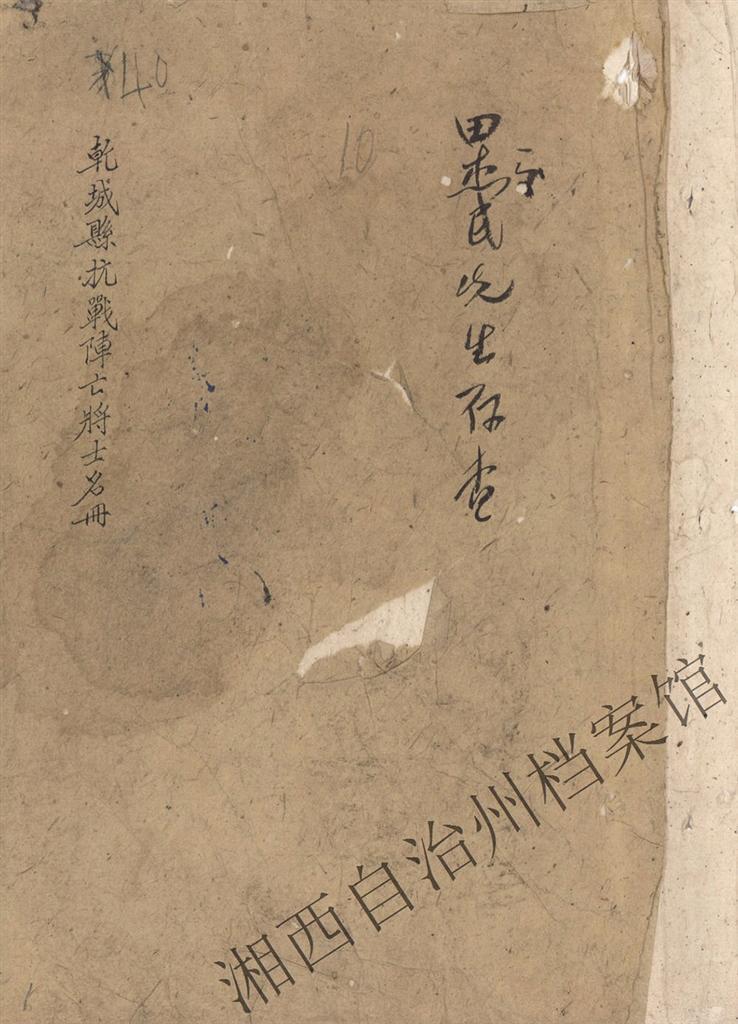 田杰民先生存查
乾城縣抗戰陣亡將士名冊
40
10
湘西自治州档案馆